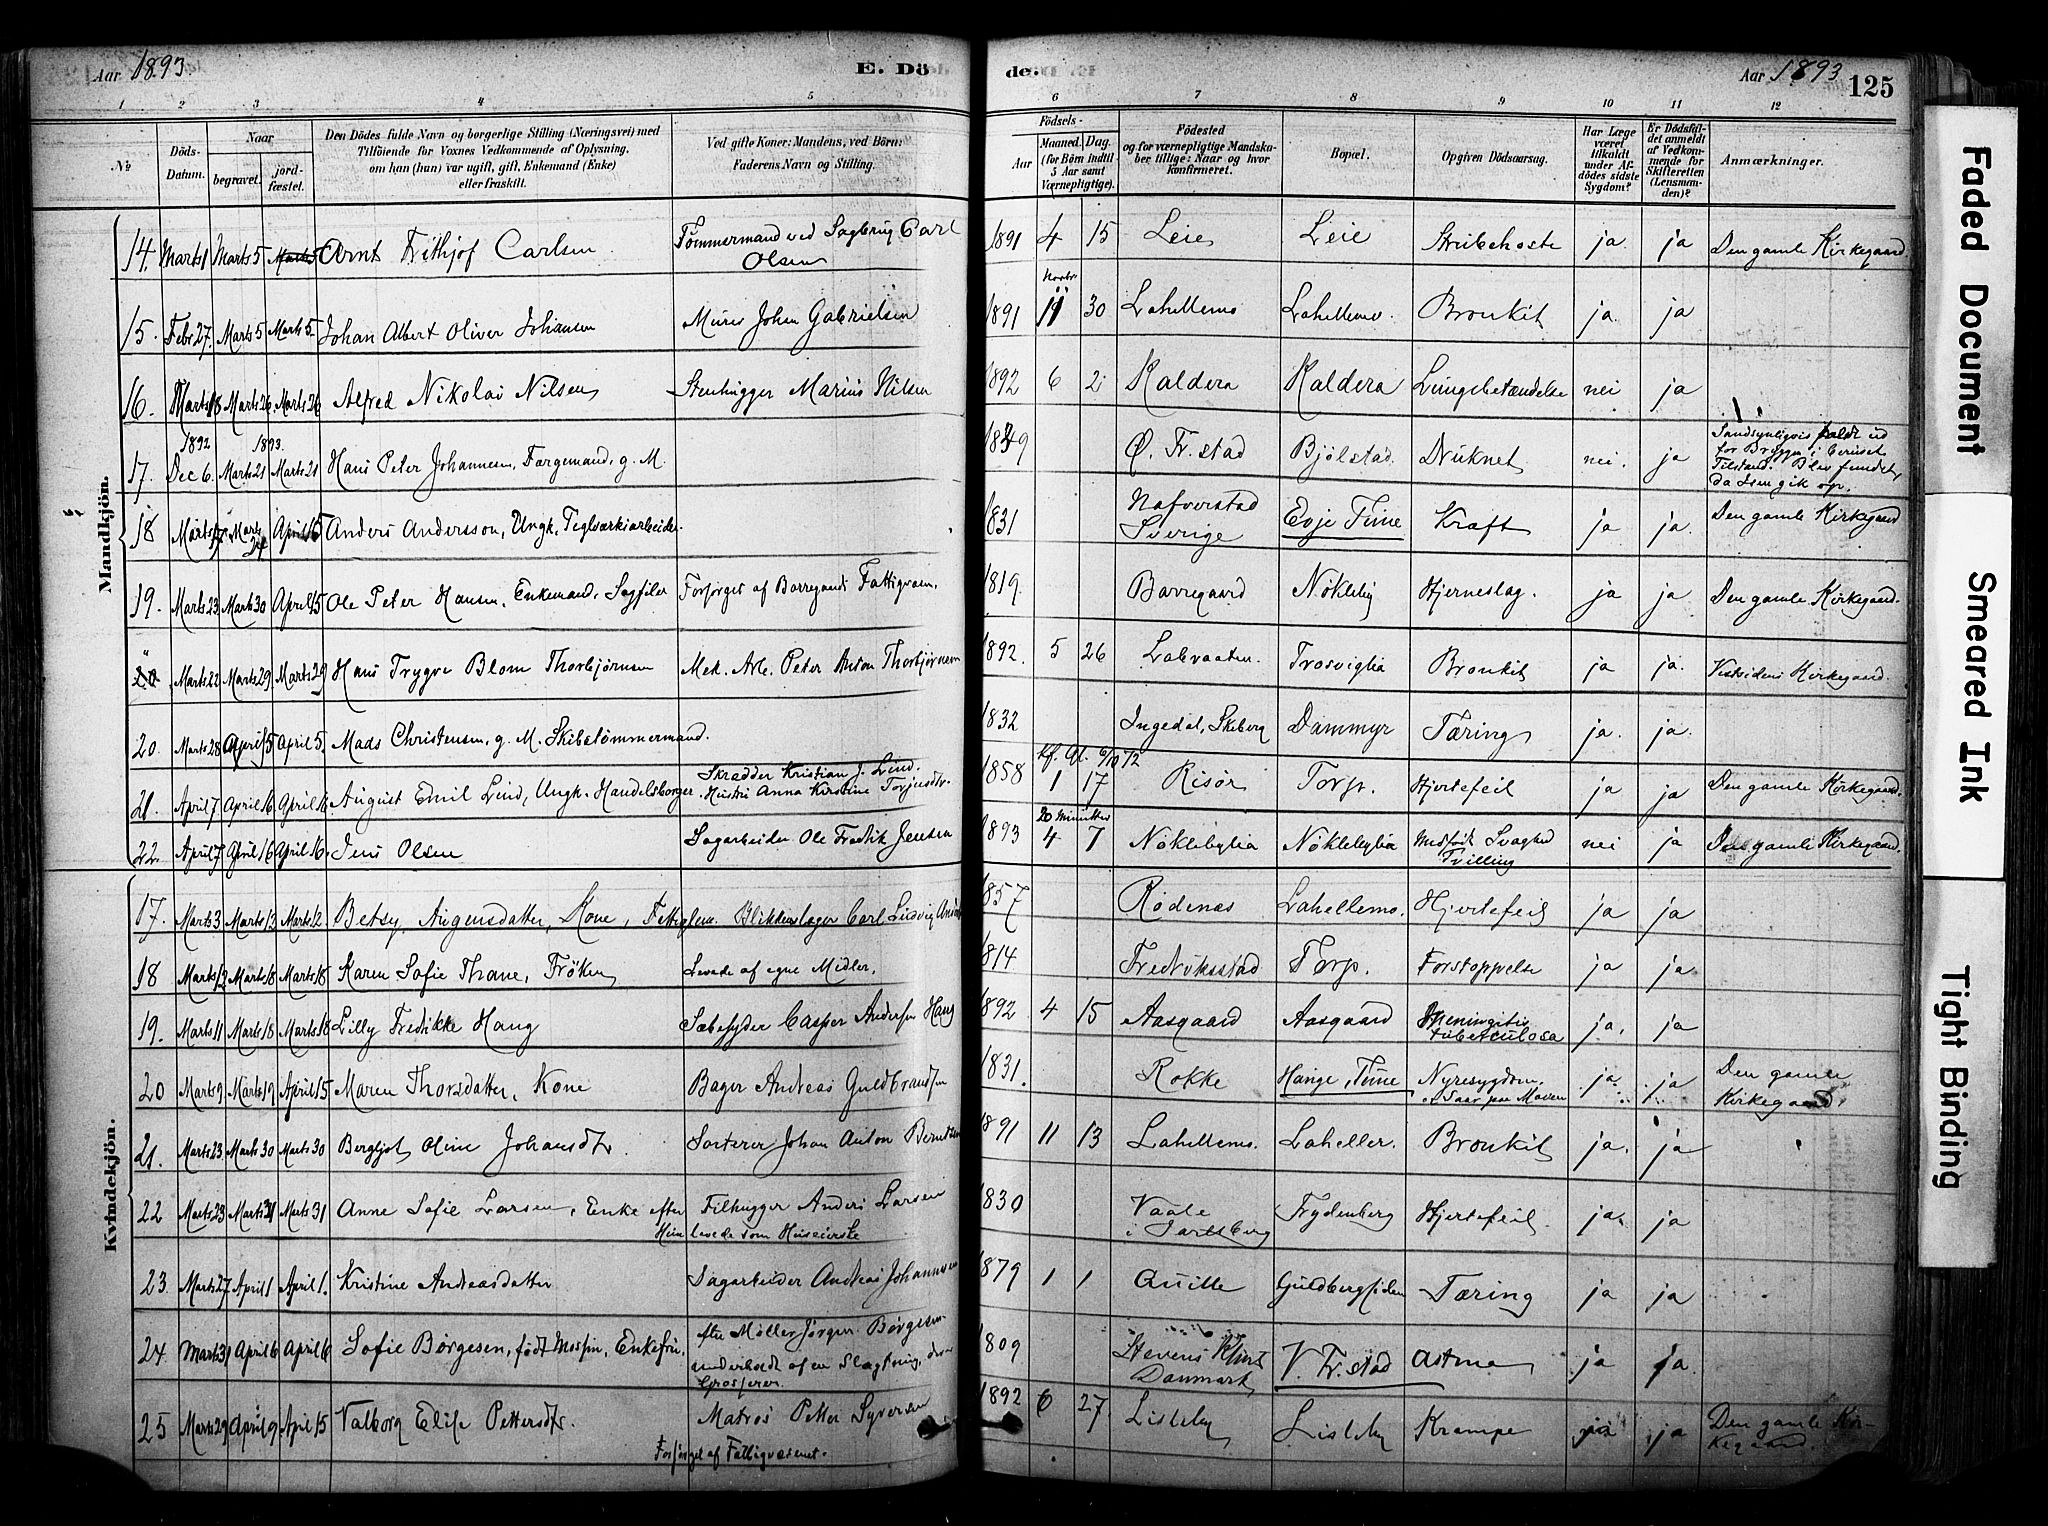 Aar 1893 E. Döde. Aar 1893 125
1 2 3 4 5 6 7 8 9 10 11 12
№ Döds-Datum. Naar begravet. jordfæstet. Den Dödes fulde Navn og borgerlige Stilling (Næringsvei) med Tilföiende for Voxnes Vedkommende af Oplysning, om han (hun) var ugift, gift, Enkemand (Enke) eller fraskilt. Ved gifte Koner: Mandens, ved Börn: Faderens Navn og Stilling. Födsels- Aar Maaned, Dag. (for Börn indtil 5 Aar samt Værnepligtige). Födested og for værnepligtige Mandskaber tillige: Naar og hvor konfirmeret. Bopæl. Opgiven Dödsaarsag. Har Læge været tilkaldt under Afdödes sidste Sygdom? Er Dödsfaldet anmeldt af Vedkommende for Skifteretten (Lensmanden)? Anmærkninger.
Mandkjön.
14. Marts 1 Marts 5 Marts 5 Arnt Frithjof Carlsen Tömmermand ved Sagbrug Carl Olsen 1891 4 15 Leie Leie Stribehoste ja ja Den gamle Kirkegaard
15. Febr 27. Marts 5 Marts 5 Johan Albert Oliver Johansen Murer Johan Gabrielsen 1891 11 30 Lahellemo Lahellemo. Bronkit ja ja
16. Marts 18 Marts 26 Marts 26 Alfred Nikolai Nilsen Stenhugger Marius Nilsen 1892 6 2 Kaldera Kaldera Lungebetændelse nei ja
17. 1892 Dec 6. 1893. Marts 21 Marts 21 Hans Peter Johannesen, Færgemand, g. M. 1849 Ö. Fr.stad Bjölstad Druknet nei. ja Sandsynligvis faldt ud for Bryggen i beruset Tilstand. Blev fundet, da Isen gik op.
18 Marts 17 Marts 24 April 15 Anders Andersson, Ungk, Teglværksarbeider. 1831 Nafverstad Sverige Evje Tune Kræft ja ja. Den gamle Kirkegaard
19. Marts 23 Marts 30 April 15 Ole Peter Hansen, Enkemand, Sagfiler Forsörget af Borregaards Fattigvæsen. 1819. Borregaard Nökleby Hjerneslag. ja ja Den gamle Kirkegaard.
20 Marts 22 Marts 29. Marts 29 Hans Trygve Blom Thorbjörnsen Mek. Arb. Peter Anton Thorbjörnsen 1892. 5 26 Trosviglia Bronkit ja ja. Vestsidens Kirkegaard.
20. Marts 28 April 5 April 5 Mads Christensen, g. M. Skibstömmermand. 1832 Ingedal, Skeberg Dammyr Tæring ja ja.
21. April 7 April 16 April 16 August Emil Lind, Ungk. Handelsborger. Skrædder Kristian J. Lind. Hustru Anna Kirstine 1858 1 17 Risör Torp. Hjertefeil ja ja Den gamle Kirkegaard.
22. April 7 April 16 April 16. Jens Olsen Sagarbeider Ole Fredrik Jensen 1893 20 Minutter 4 7 Nöklebylia Nöklebylia Medfödt Svaghed Tvilling nei ja Den gamle Kirkegaard.
Kvindekjön.
17. Marts 3 Marts 12 Marts 12 Betsy Augunsdatter, Kone, Blikkenslager Carl Ludvig 1857 Rödenæs Lahellemo. Hjertefeil ja ja
18 Marts 12 Marts 18 Marts 18 Karen Sofie Thane, Fröken Levede af egne Midler. 1814. Fredrikstad Torp. Forstoppelse ja ja
19. Marts 11 Marts 18 Marts 18 Lilly Fredrikke Haug Sæbesyder Casper Andersen Haug 1892 4 15 Aasgaard Aasgaard Meningitis tuberculosa ja. ja
20 Marts 9 Marts 19 April 15 Maren Thorsdatter, Kone Bager Andreas Guldbrandsen 1831. Rokke Hauge, Tune Nyresygdom. Saar paa Maven ja ja Den gamle Kirkegaard.
21. Marts 23 Marts 30 Marts 30 Bergljot Oline Johansdtr Sorterer Johan Anton Berntsen 1891 11 13 Lahellemo. Laheller. Bronkit ja. ja
22 Marts 23 Marts 31 Marts 31 Anne Sofie Larsen, Enke efter Filhugger Anders Larsen Hun levede som Huseierske 1830 Vaale i Jarlsberg Frydenberg Hjertefeil. ja. ja
23. Marts 27 April 1 April 1. Kristine Andreasdatter Sagarbeider Andreas Johannsen 1879 1 1 Quille Guldbergsiden Tæring ja ja
24. Marts 31 April 6 April 6 Sofie Börgesen, födt Enkefru, efter Möller Jörgen Börgesen underholdt af en Slægtning, 1809 Stevens Klint Danmark V. Fr. stad Astma ja ja
25 Marts 29 April 9 April 15 Valborg Elise Pettersdtr. Matros Petter Syversen Forsörget af Fattigvæsenet. 1892 6 27 Lisleby Lisleby Krampe ja ja Den gamle Kirkegaard.
Faded Document
Smeared Ink
Tight Binding